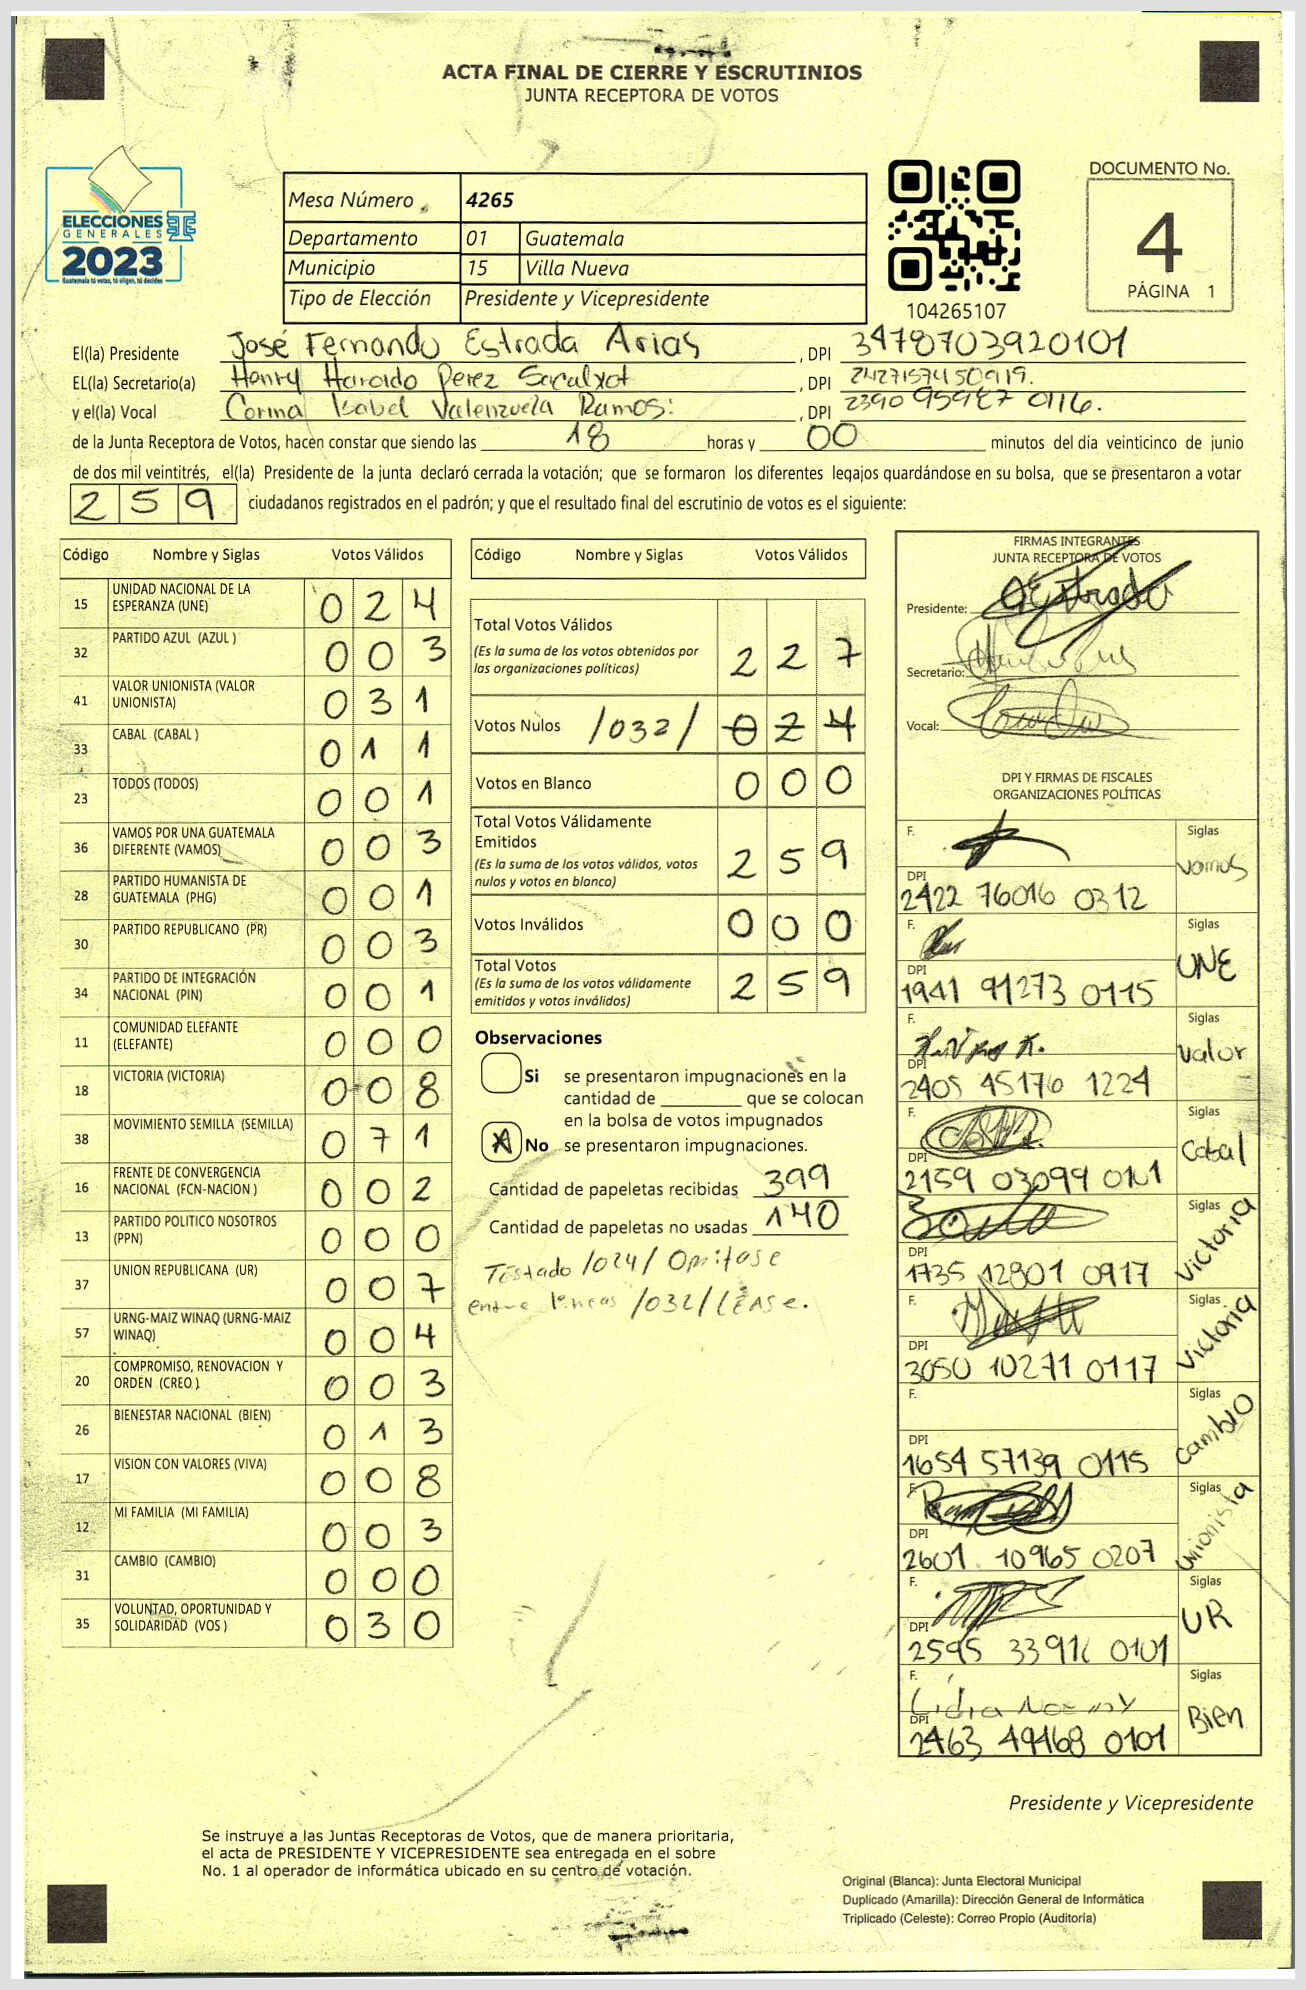 ACTA FINAL DE CIERRE Y ESCRUTINIOS
JUNTA RECEPTORA DE VOTOS
ELECCIONES
GENERALES
2023
Guatemala tú votas, tú eliges, tú decides
Mesa Número 4265
Departamento 01 Guatemala
Municipio 15 Villa Nueva
Tipo de Elección Presidente y Vicepresidente
104265107
DOCUMENTO No.
4
PÁGINA 1
El(la) Presidente José Fernando Estrada Arias , DPI 3478703920101
EL(la) Secretario(a) Henry Haroldo Perez Sacalxot , DPI
y el(la) Vocal Corina Isabel Valenzuela Ramos: , DPI 2390 95987 0116.
de la Junta Receptora de Votos, hacen constar que siendo las 18 horas y 00 minutos del día veinticinco de junio
de dos mil veintitrés, el(la) Presidente de la junta declaró cerrada la votación; que se formaron los diferentes legajos quardándose en su bolsa, que se presentaron a votar
259 ciudadanos registrados en el padrón; y que el resultado final del escrutinio de votos es el siguiente:
Código Nombre y Siglas Votos Válidos
15 UNIDAD NACIONAL DE LA ESPERANZA (UNE) 024
32 PARTIDO AZUL (AZUL ) 003
41 VALOR UNIONISTA (VALOR UNIONISTA) 031
33 CABAL (CABAL ) 011
23 TODOS (TODOS) 001
36 VAMOS POR UNA GUATEMALA DIFERENTE (VAMOS) 003
28 PARTIDO HUMANISTA DE GUATEMALA (PHG) 001
30 PARTIDO REPUBLICANO (PR) 003
34 PARTIDO DE INTEGRACIÓN NACIONAL (PIN) 001
11 COMUNIDAD ELEFANTE (ELEFANTE) 000
18 VICTORIA (VICTORIA) 008
38 MOVIMIENTO SEMILLA (SEMILLA) 071
16 FRENTE DE CONVERGENCIA NACIONAL (FCN-NACION ) 002
13 PARTIDO POLITICO NOSOTROS (PPN) 000
37 UNION REPUBLICANA (UR) 007
57 URNG-MAIZ WINAQ (URNG-MAIZ WINAQ) 004
20 COMPROMISO, RENOVACION Y ORDEN (CREO ) 003
26 BIENESTAR NACIONAL (BIEN) 013
17 VISION CON VALORES (VIVA) 008
12 MI FAMILIA (MI FAMILIA) 003
31 CAMBIO (CAMBIO) 000
35 VOLUNTAD, OPORTUNIDAD Y SOLIDARIDAD (VOS ) 030
Código Nombre y Siglas Votos Válidos
Total Votos Válidos
(Es la suma de los votos obtenidos por
las organizaciones políticas) 227
Votos Nulos /032/ 024
Votos en Blanco 000
Total Votos Válidamente
Emitidos
(Es la suma de los votos válidos, votos
nulos y votos en blanco) 259
Votos Inválidos 000
Total Votos
(Es la suma de los votos válidamente
emitidos y votos inválidos) 259
Observaciones
Si se presentaron impugnaciones en la
cantidad de ________ que se colocan
en la bolsa de votos impugnados
X No se presentaron impugnaciones.
Cantidad de papeletas recibidas 399
Cantidad de papeletas no usadas 140
Testado /024/ Omitase
entre lineas /032/ LEASE.
FIRMAS INTEGRANTES
JUNTA RECEPTORA DE VOTOS
Presidente:
Secretario:
Vocal:
DPI Y FIRMAS DE FISCALES
ORGANIZACIONES POLÍTICAS
F. Siglas
DPI vamos
2422 76016 0312
F. Siglas
DPI UNE
1941 91273 0115
F. Siglas
DPI Valor
2405 45176 1224
F. Siglas
DPI Cabal
2159 03099 0101
F. Siglas
DPI Victoria
1735 12801 0917
F. Siglas
DPI Victoria
3050 10271 0117
F. Siglas
DPI Cambio
1654 57139 0115
F. Siglas
DPI Unionista
2601 10965 0207
F. Siglas
DPI UR
2595 33916 0101
F. Siglas
Lidia
DPI Bien
2463 49468 0101
Presidente y Vicepresidente
Se instruye a las Juntas Receptoras de Votos, que de manera prioritaria,
el acta de PRESIDENTE Y VICEPRESIDENTE sea entregada en el sobre
No. 1 al operador de informática ubicado en su centro de votación.
Original (Blanca): Junta Electoral Municipal
Duplicado (Amarilla): Dirección General de Informática
Triplicado (Celeste): Correo Propio (Auditoría)